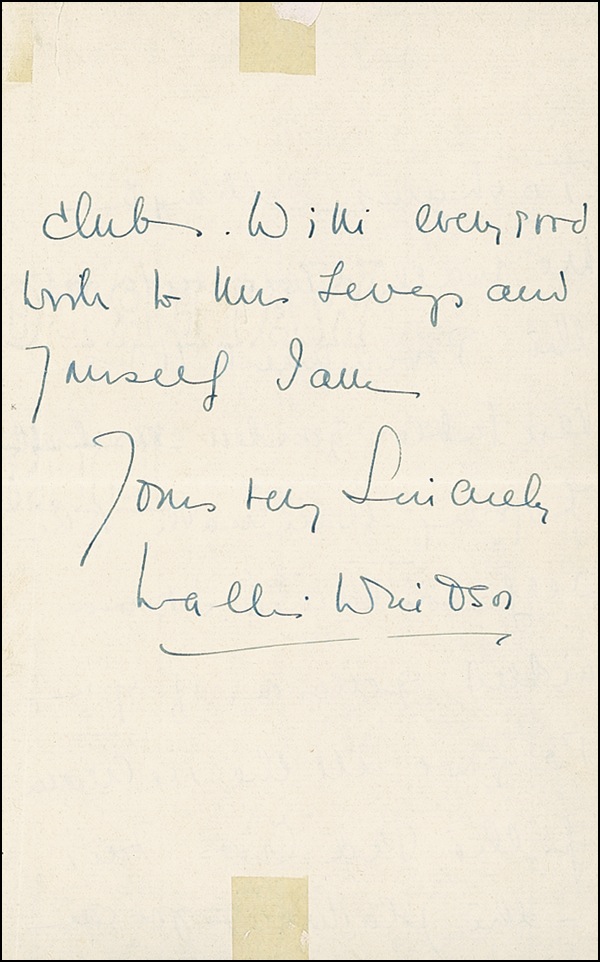 clubs. With every good
wish to Mrs Levey and
yourself I am
Yours very Sincerely
Wallis Windsor